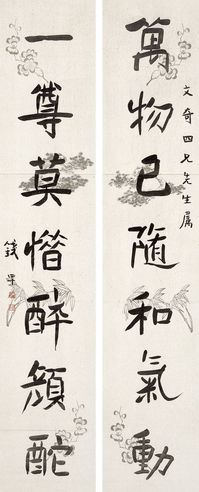 文奇四兄先生属
萬物已隨和氣動
一尊莫惜醉顏酡
籛罕